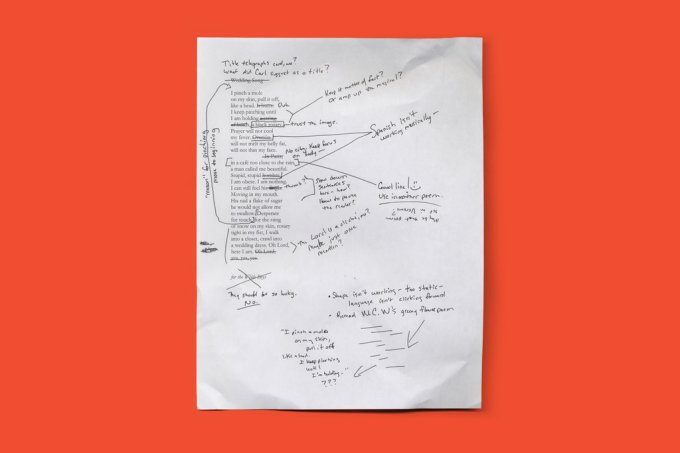 Title telegraphs
What did Carl suggest as a title?
Wedding Song
I pinch a mole
on my skin, pull it off,
like a bead.
I keep pinching until
I am holding a black rosary.
Prayer will not cool
my fever.
will not melt my belly fat,
will not thin my face.
In Paris,
in a café too close to the
a man called me beautiful.
Stupid, stupid
I am obese, I am nothing.
I can still feel his
Moving in my mouth.
His nail a flake of sugar
he would not allow me
to swallow. Desperate
for touch, for the sting
of snow on my skin, rosary
tight in my fist, I walk
into a closet, crawl into
a wedding dress. Oh Lord,
here I am. Oh Lord,
for the
They should be so lucky.
No.
"reason" for pinching
move to beginning
Keep it matter of fact?
or amp up the magical?
trust the image.
Spanish isn't
working musically—
No city. Keep focus
on body—
thumb?
Slow down?
Sentences
here—how?
how to pause
the reader?
Good line!
Use in another poem.
Maybe just one
mention?
• Shape isn't working – too static –
language isn't clicking forward
• Reread W.C.W's greeny flower poem
"I pinch a mole
on my skin,
pull it off
like a bead.
I keep pinching
until
I'm holding..."
???